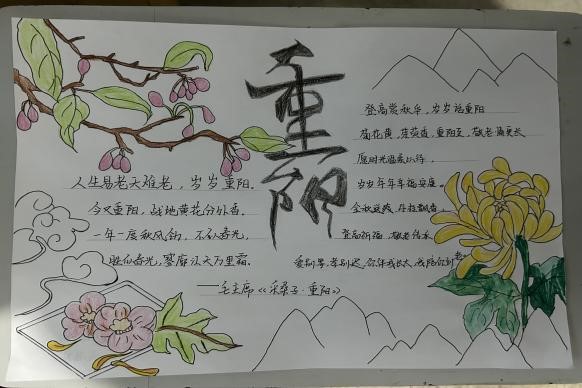 重阳
人生易老天难老，岁岁重阳。
今又重阳，战地黄花分外香。
一年一度秋风劲，不似春光，
胜似春光，寥廓江天万里霜。
——毛主席《采桑子·重阳》
登高赏秋华，岁岁话重阳
菊花黄，茱萸香，重阳至，敬老情更长
愿时光温柔以待，
岁岁年年幸福安康。
金秋送爽，丹桂飘香，
登高祈福，敬老传承
爱别等，孝别迟，你伴我长大，我陪你到老。